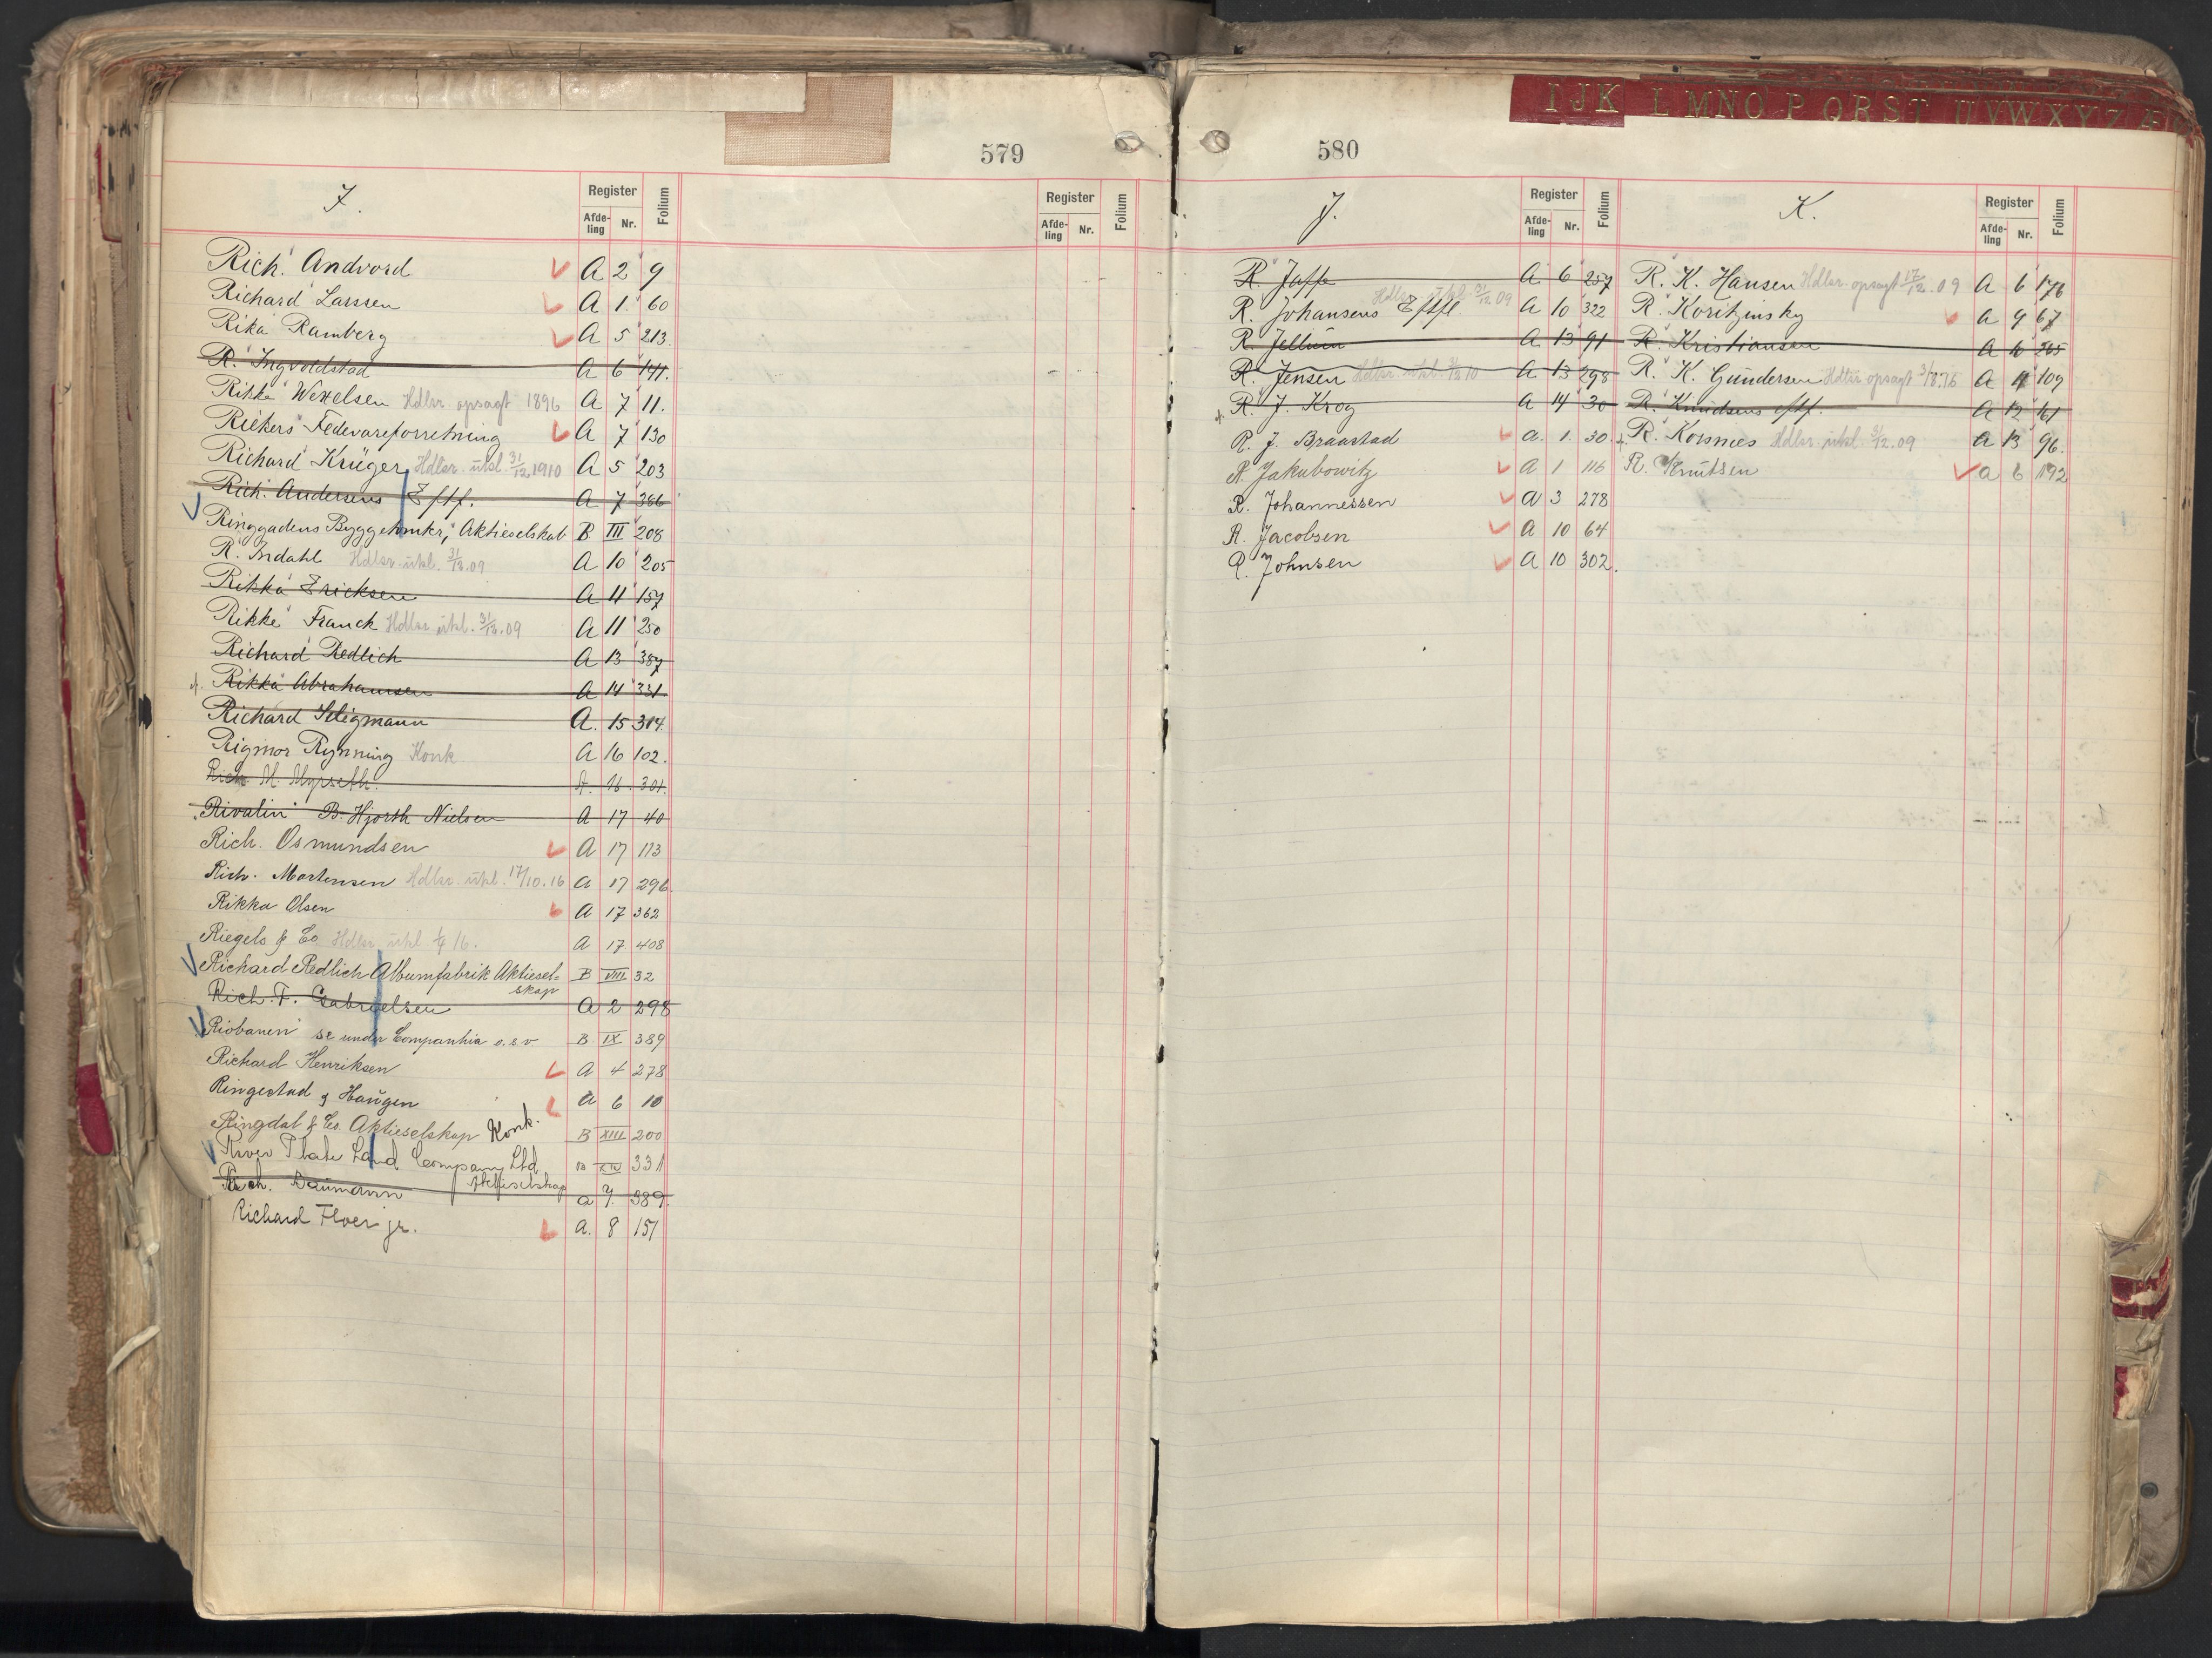 579
I.
Register
Afde-ling
Nr.
Folium
Register
Afde-ling
Nr.
Folium
Rich. Andvord A 2 9
Richard Larssen A 1. 60
Rika Ramberg A 5 213.
R. Ingvoldstad A 6 141.
Rikke Wexelsen Hdlsr. opsagt 1896 A 7 11.
Riekers Fedevareforretning A 7 130
Richard Krüger Hdlsr. utsl. 31/12 1910 A 5 203
Rich. Andersens Eftf. A 7 366
Ringgadens Byggetomter, Aktieselskab B III 208
R. Indahl Hdlsr. utsl. 31/12.09 A 10 205
Rikka Ericksen A 11 157
Rikke Franck Hdlsr. utsl. 31/12.09 A 11 250
Richard Redlich A 13 387
Rikka Abrahamsen A 14 331.
Richard Seligmann A. 15 314.
Rigmor Rynning Konk. A 16 102.
Rich M. Myrseth. A. 16. 301.
Rivalin B. Hjorth Nielsen A 17 40
Rich. Osmundsen A 17 113
Rich. Mortensen Hdlsr. utsl. 17/10.16 A 17 296.
Rikka Olsen A 17 362
Riegels & Co Hdlsr. utsl. 16. A 17 408
Richard Redlich Albumfabrik Aktiesel-
skap B VIII 32
Rich. F. Gabrielsen A 2 298
Riobanen se under Companhia o.s.v. B IX 389
Richard Henriksen A 4 278
Ringestad & Haugen A 6 10
Ringdal & Co. Aktieselskap Konk. B XIII 200
River Plate Land Company Ltd B XIV 331
Aktieselskap
Rich. Baumann a 7. 389.
Richard Floer jr. A. 8 151
580
J.
Register
Afde-ling
Nr.
Folium
K.
Register
Afde-ling
Nr.
Folium
R. Jaffe A 6 257
R. Johansens Eftfl. Hdlsr. utsl. 31/12 09 A 10 322
R. Jellum A 13 91
R. Jensen Hdlsr. utsl. 31/12 10 A 13 298
R. J. Krog A 14 30
R. J. Braastad a. 1. 30.
R. Jakubowitz A 1 116
R. Johannessen A 3 278
R. Jacobsen A 10 64
R. Johnsen A 10 302.
R. K. Hansen Hdlsr. opsagt 17/12.09 A 6 176
R. Koritzinsky A 9 67
R. Kristiansen A 10 265
R. K. Gundersen Hdlsr. opsagt 3/8.76 A 11 109
R. Knudsens eftf. A 12 61
R. Korsnes Hdlsr. utsl. 31/12.09 A 13 96.
R. Knutsen a 6 192
IJK L MNO P QRST UVW XYZ